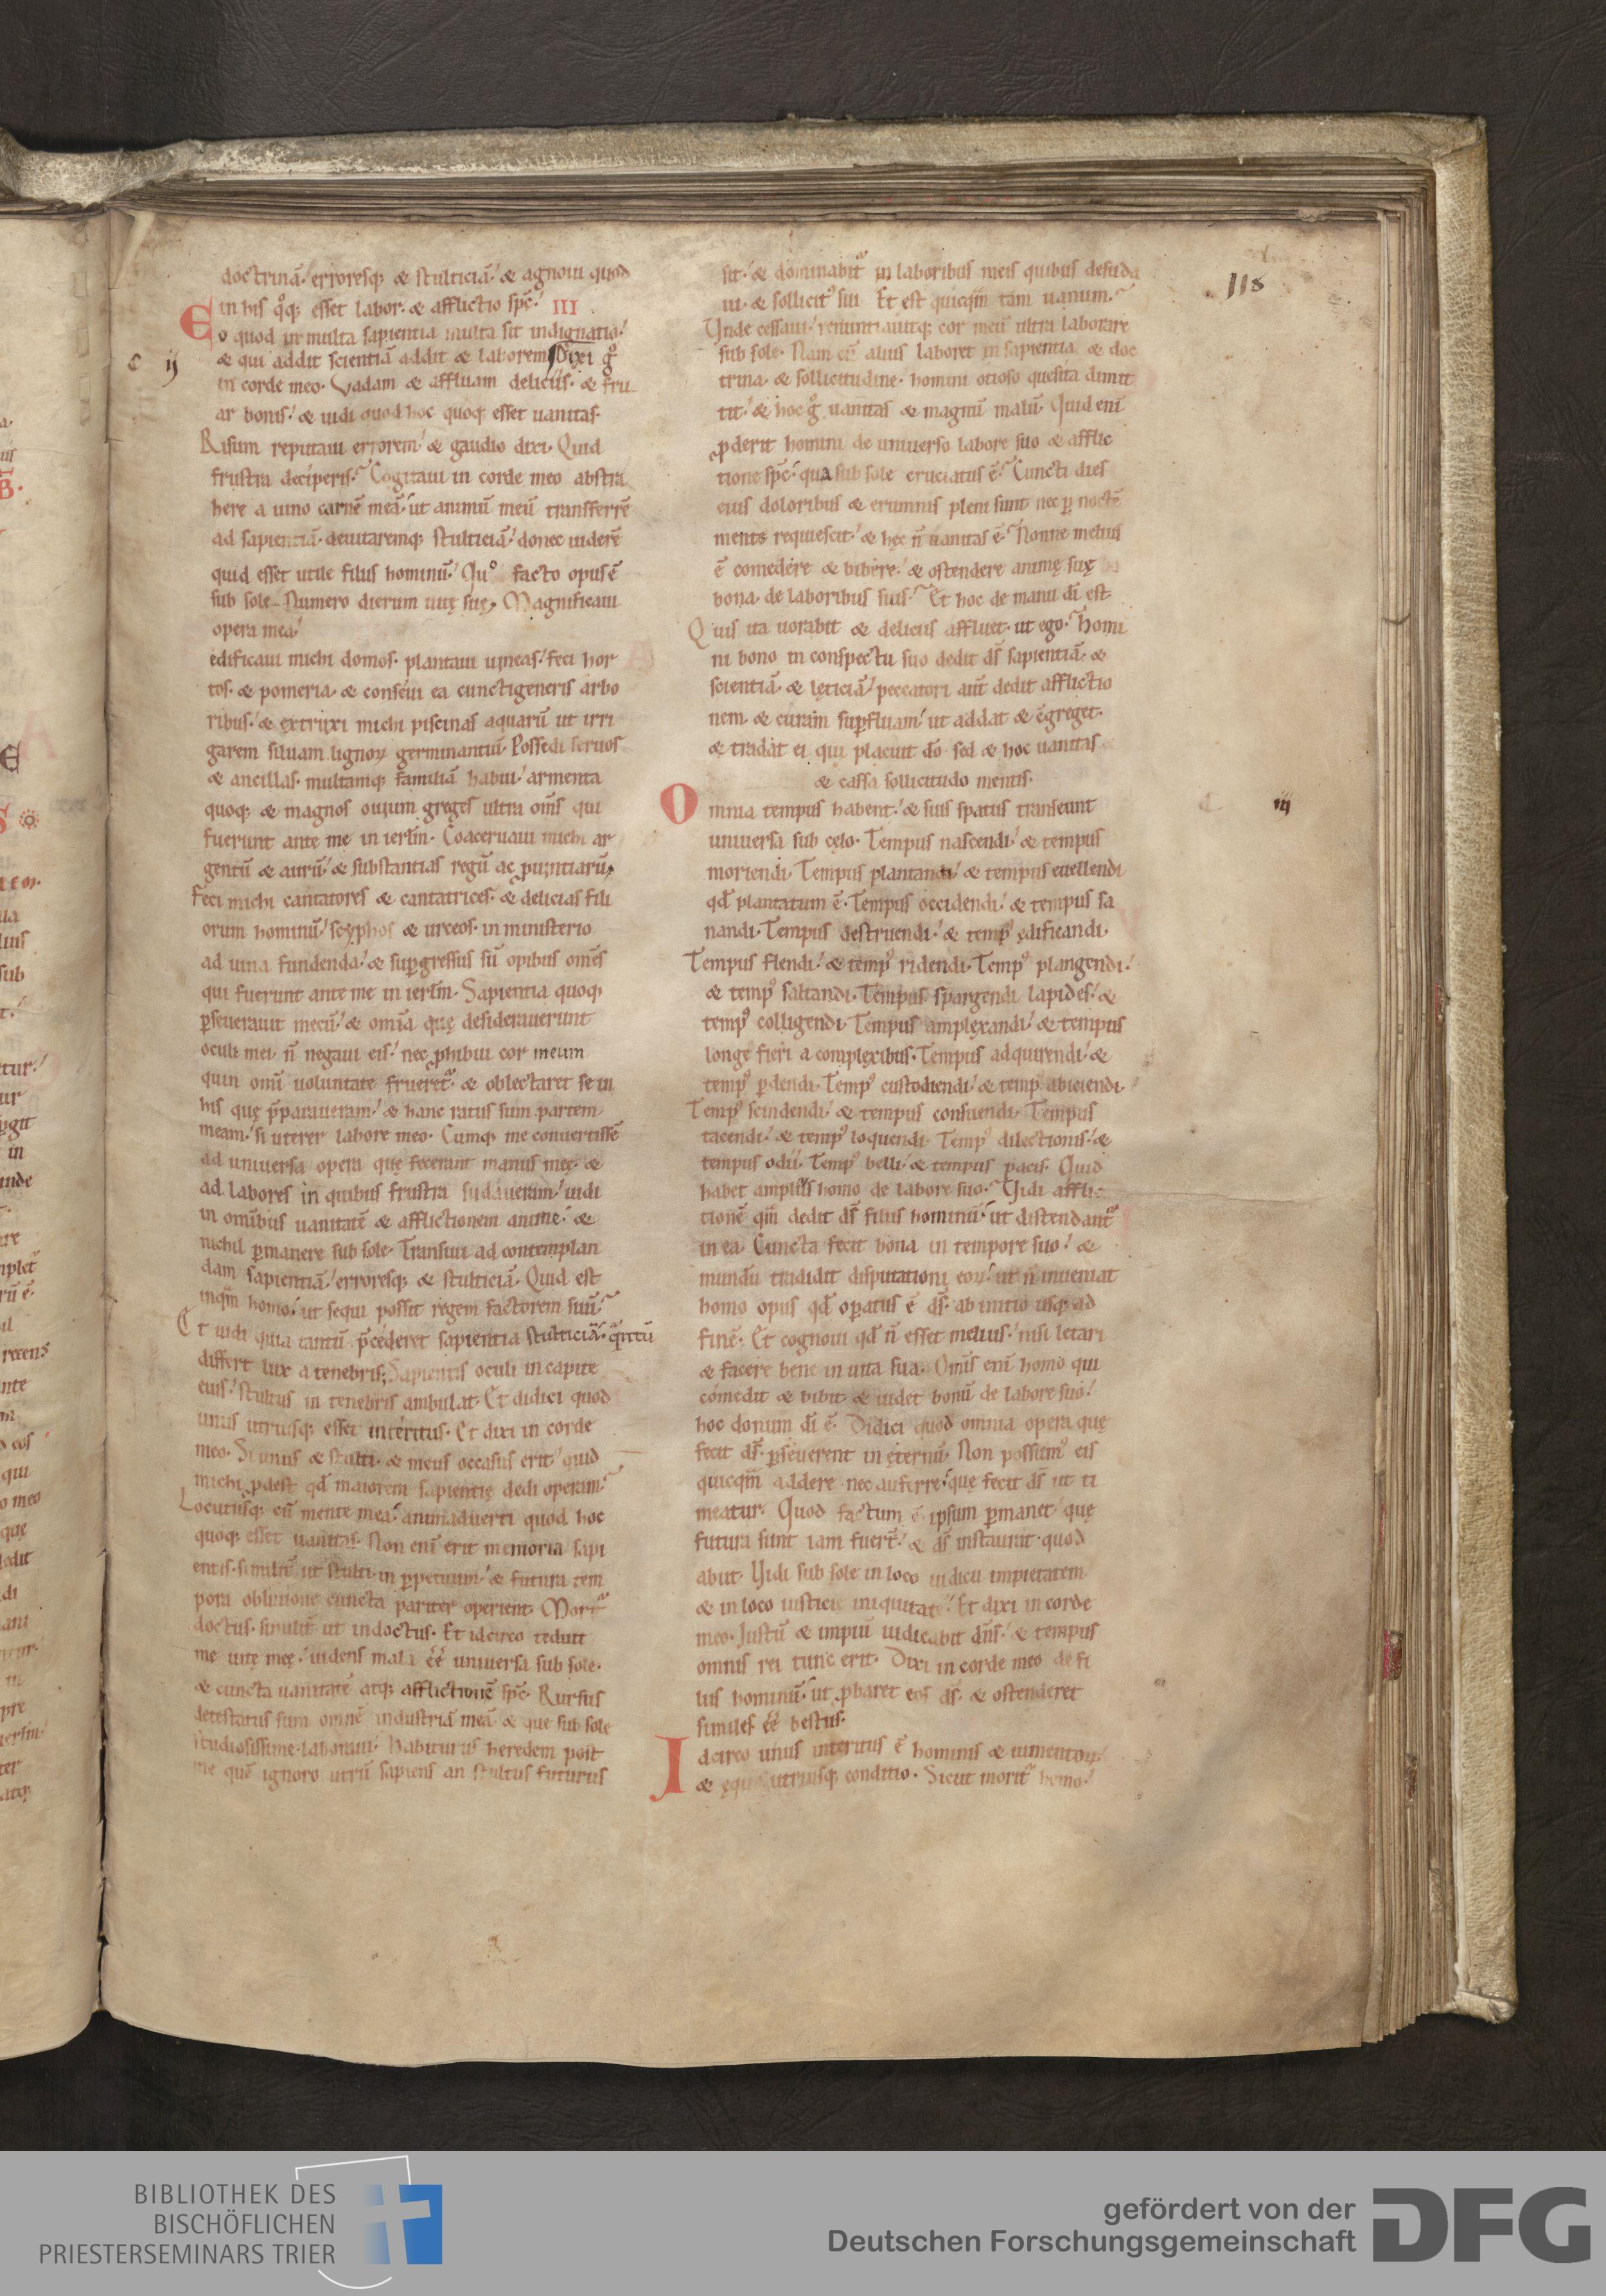 doctrinā. erroresq; & stulticiā. & agnoui quod
in his qͦq; esset labor. & afflictio spc̄. III
Eo quod in multa sapientia multa sit indignatio.
& qui addit scientiā addit & laborem Dixi gͦ
C ij
in corde meo. Vadam & affluam deliciis. & fru
ar bonis. & uidi quod hoc quoq; esset uanitas.
Risum reputaui errorem. & gaudio dixi. Quid
frustra deciperis. Cogitaui in corde meo abstra
here a uino carnē meā. ut animū meū transferrē
ad sapientiā. deuitaremq; stulticiā. donec uiderē
quid esset utile filiis hominū. Quͦ facto opus ē
sub sole. Numero dierum uitę suę. Magnificaui
opera mea.
edificaui michi domos. plantaui uineas. feci hor
tos. & pomeria. & conseui ea cuncti generis arbo
ribus. & extruxi michi piscinas aquarū ut irri
garem siluam lignoꝝ germinantiū. Possedi seruos
& ancillas. multamq; familiā habui. armenta
quoq; & magnos ouium greges ultra om̄s qui
fuerunt ante me in ierlm̄. Coaceruaui michi ar
gentū & aurū. & substantias regū ac ꝓuintiarū.
Feci michi cantatores & cantatrices. & delicias fili
orum hominū. scyphos & urceos. in ministerio
ad uina fundenda. & suꝑgressus sū opibus omēs
qui fuerunt ante me in ierlm̄. Sapientia quoq;
ꝑseuerauit mecū. & omīa quę desiderauerunt
oculi mei. n̄ negaui eis. nec ꝓhibui cor meum
quin omī uoluntate frueret᷑. & oblectaret se in
his quę p̄paraueram. & hanc ratus sum partem
meam. si uterer labore meo. Cumq; me conuertissē
ad uniuersa opera quę fecerant manus meę. &
ad labores in quibus frustra sudaueram. uidi
in omībus uanitatē & afflictionem anime. &
nichil ꝑmanere sub sole. Transiui ad contemplan
dam sapientiā. erroresq; & stulticiā. Quid est
inqm̄ homo. ut sequi possit regem factorem suū.
Et uidi quia tantū p̄cederet sapientia stulticiā. q̄ntū
differt lux a tenebris. Sapientis oculi in capite
eius. stultus in tenebris ambulat. Et didici quod
unus utriusq; esset interitus. Et dixi in corde
meo. Si unus & stulti. & meus occasus erit. quid
michi ꝓdest qd̄ maiorem sapientię dedi operam.
Locutusq; cū mente mea. animaduerti quod hoc
quoq; esset uanitas. Non enī erit memoria sapi
entis. similit̄ ut stulti. in ꝑpetuum. & futura tem
pora obliuione cuncta pariter operient. Morit᷑
doctus. similit̄ ut indoctus. Et idcirco teduit
me uitę meę. uidens mala ēē uniuersa sub sole.
& cuncta uanitatē atq; afflictionē spc̄. Rursus
detestatus sum omnē industriā meā. & que sub sole
studiosissime laboraui. habiturus heredem post
me quē ignoro utrū sapiens an stultus futurus
sit. & dominabit᷑ in laboribus meis quibus desuda
118
ui. & sollicitꝰ sui. Et est quicqm̄ tam uanum.
Unde cessaui. renuntiauitq; cor meū ultra laborare
sub sole. Nam cū alius laboret in sapientia. & doc
trina. & sollicitudine. homini otioso quesita dimit
tit. & hoc gͦ uanitas & magnū malū. Quid enī
ꝓderit homini de uniuerso labore suo & afflic
tione spc̄. qua sub sole cruciatus ē. Cuncti dies
eius doloribus & erumnis pleni sunt nec ꝑ noctē
mente requiescit. & hęc n̄ uanitas ē. Nonne melius
ē comedere & bibere. & ostendere animę suę
bona. de laboribus suis. Et hoc de manu dī est
Quis ita uorabit & deliciis affluet. ut ego. Homi
ni bono in conspectu suo dedit ds̄ sapientiā. &
scientiā. & lęticiā. peccatori aut̄ dedit afflictio
nem. & curam suꝑfluam. ut addat & c̄greget.
& tradat ei qui placuit dō. sed & hoc uanitas
& cassa sollicitudo mentis.
Omnia tempus habent. & suis spatiis transeunt
C iij
uniuersa sub cęlo. Tempus nascendi. & tempus
moriendi. Tempus plantandi. & tempus euellendi
qd̄ plantatum ē. Tempus occidendi. & tempus sa
nandi. Tempus destruendi. & tempꝰ ędificandi.
Tempus flendi. & tempꝰ ridendi. Tempꝰ plangendi.
& tempꝰ saltandi. Tempus spargendi lapides. &
tempꝰ colligendi. Tempus amplexandi. & tempus
longe fieri a complexibus. Tempus adquirendi. &
tempꝰ ꝑdendi. Tempꝰ custodiendi. & tempꝰ abiciendi.
Tempꝰ scindendi. & tempus consuendi. Tempus
tacendi. & tempꝰ loquendi. Tempꝰ dilectionis. &
tempus odii. Tempꝰ belli. & tempus pacis. Quid
habet amplius homo de labore suo. Uidi afflic
tionē qm̄ dedit ds̄ filiis hominū. ut distendant᷑
in ea. Cuncta fecit bona in tempore suo. &
mundū tradidit disputationi eoꝝ. ut n̄ inueniat
homo opus qd̄ oꝑatus ē ds̄. ab initio usq; ad
finē. Et cognoui qd̄ n̄ esset melius. nisi letari
& facere bene in uita sua. Omīs enī homo qui
comedit & bibit. & uidet bonū de labore suo.
hoc donum dī ē. Didici quod omnia opera quę
fecit ds̄. ꝑseuerent in ęternū. Non possumꝰ eis
quicqm̄ addere nec auferre. quę fecit ds̄ ut ti
meatur. Quod factum ē ipsum ꝑmanet. quę
futura sunt iam fuer̄t. & ds̄ instaurat. quod
abiit. Uidi sub sole in loco iudicii impietatem
& in loco iusticie iniquitatē. Et dixi in corde
meo. Justū & impiū iudicabit dn̄s. & tempus
omnis rei tunc erit. Dixi in corde meo de fi
liis hominū. ut ꝓbaret eos ds̄. & ostenderet
similes ēē bestiis.
Idcirco unus interitus ē hominis & iumentoꝝ.
& ęqua utriusq; conditio. Sicut morit᷑ homo.
BIBLIOTHEK DES
BISCHÖFLICHEN
PRIESTERSEMINARS TRIER
gefördert von der
Deutschen Forschungsgemeinschaft
DFG